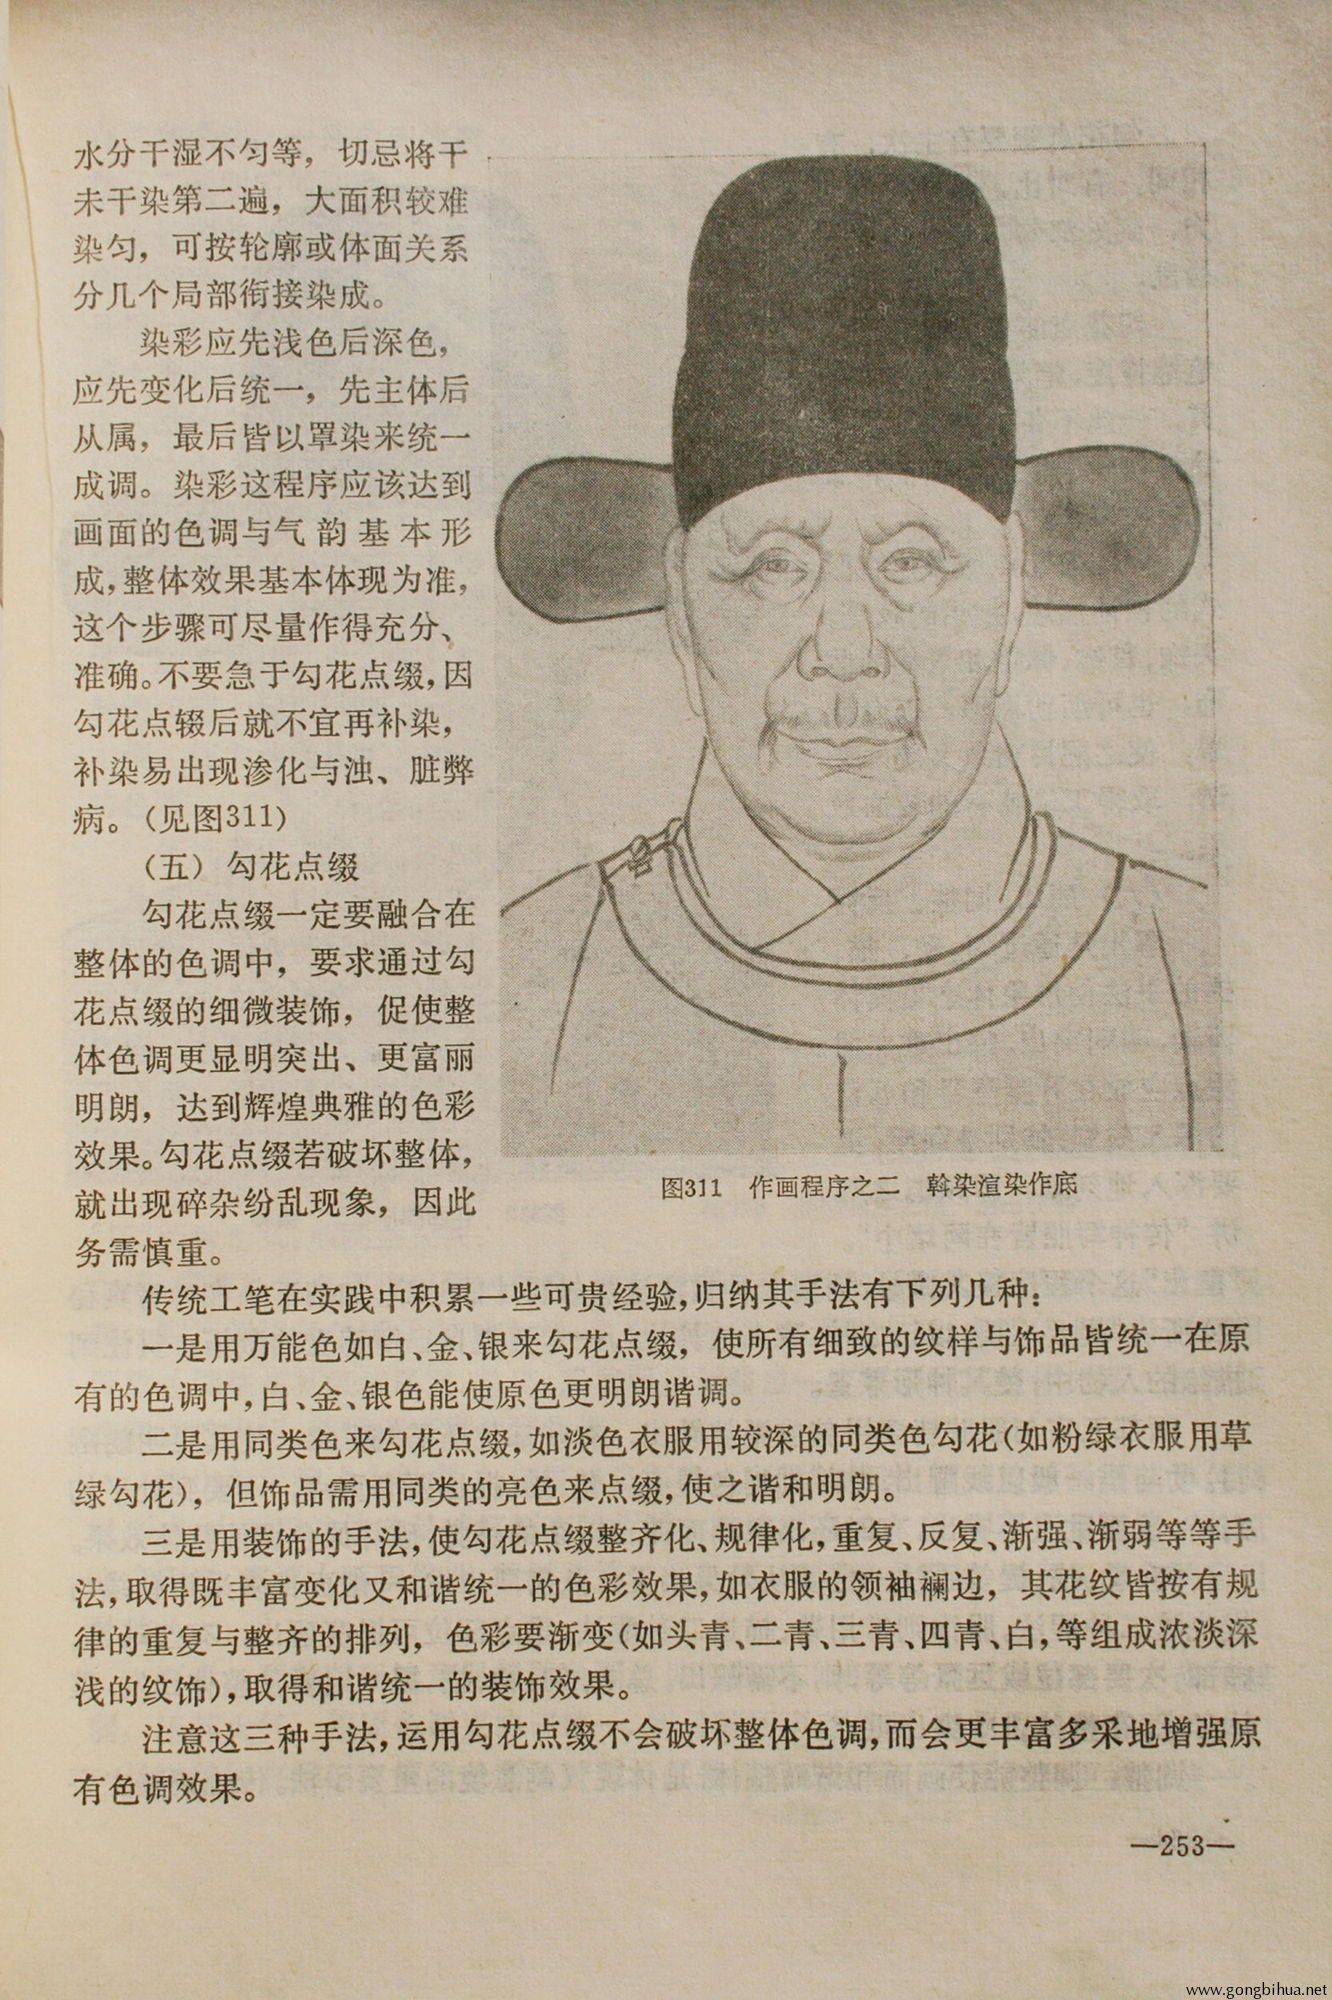 水分干湿不匀等，切忌将干
未干染第二遍，大面积较难
染匀，可按轮廓或体面关系
分几个局部衔接染成。
染彩应先浅色后深色，
应先变化后统一，先主体后
从属，最后皆以罩染来统一
成调。染彩这程序应该达到
画面的色调与气韵基本形
成，整体效果基本体现为准，
这个步骤可尽量作得充分、
准确。不要急于勾花点缀，因
勾花点辍后就不宜再补染，
补染易出现渗化与浊、脏弊
病。（见图311）
（五）勾花点缀
勾花点缀一定要融合在
整体的色调中，要求通过勾
花点缀的细微装饰，促使整
体色调更显明突出、更富丽
明朗，达到辉煌典雅的色彩
效果。勾花点缀若破坏整体，
就出现碎杂纷乱现象，因此
务需慎重。
图311 作画程序之二 斡染渲染作底
传统工笔在实践中积累一些可贵经验，归纳其手法有下列几种：
一是用万能色如白、金、银来勾花点缀，使所有细致的纹样与饰品皆统一在原
有的色调中，白、金、银色能使原色更明朗谐调。
二是用同类色来勾花点缀，如淡色衣服用较深的同类色勾花（如粉绿衣服用草
绿勾花），但饰品需用同类的亮色来点缀，使之谐和明朗。
三是用装饰的手法，使勾花点缀整齐化、规律化，重复、反复、渐强、渐弱等等手
法，取得既丰富变化又和谐统一的色彩效果，如衣服的领袖襕边，其花纹皆按有规
律的重复与整齐的排列，色彩要渐变（如头青、二青、三青、四青、白，等组成浓淡深
浅的纹饰），取得和谐统一的装饰效果。
注意这三种手法，运用勾花点缀不会破坏整体色调，而会更丰富多采地增强原
有色调效果。
—253—
www.gongbihua.net